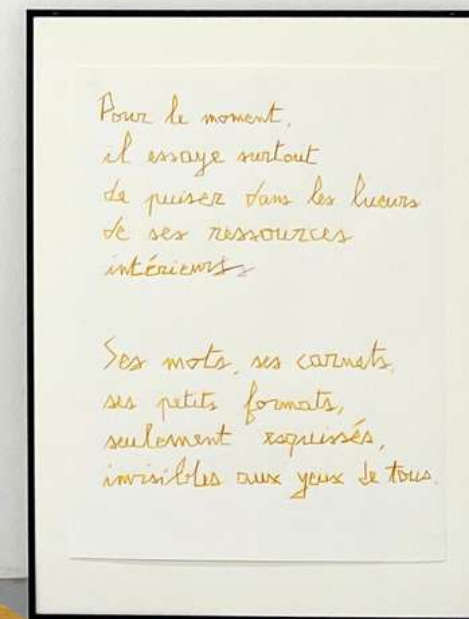 Pour le moment,
il essaye surtout
de puiser dans les lueurs
de ses ressources
intérieures
Ses mots, ses carnets,
ses petits formats,
seulement esquissés,
invisibles aux yeux de tous.